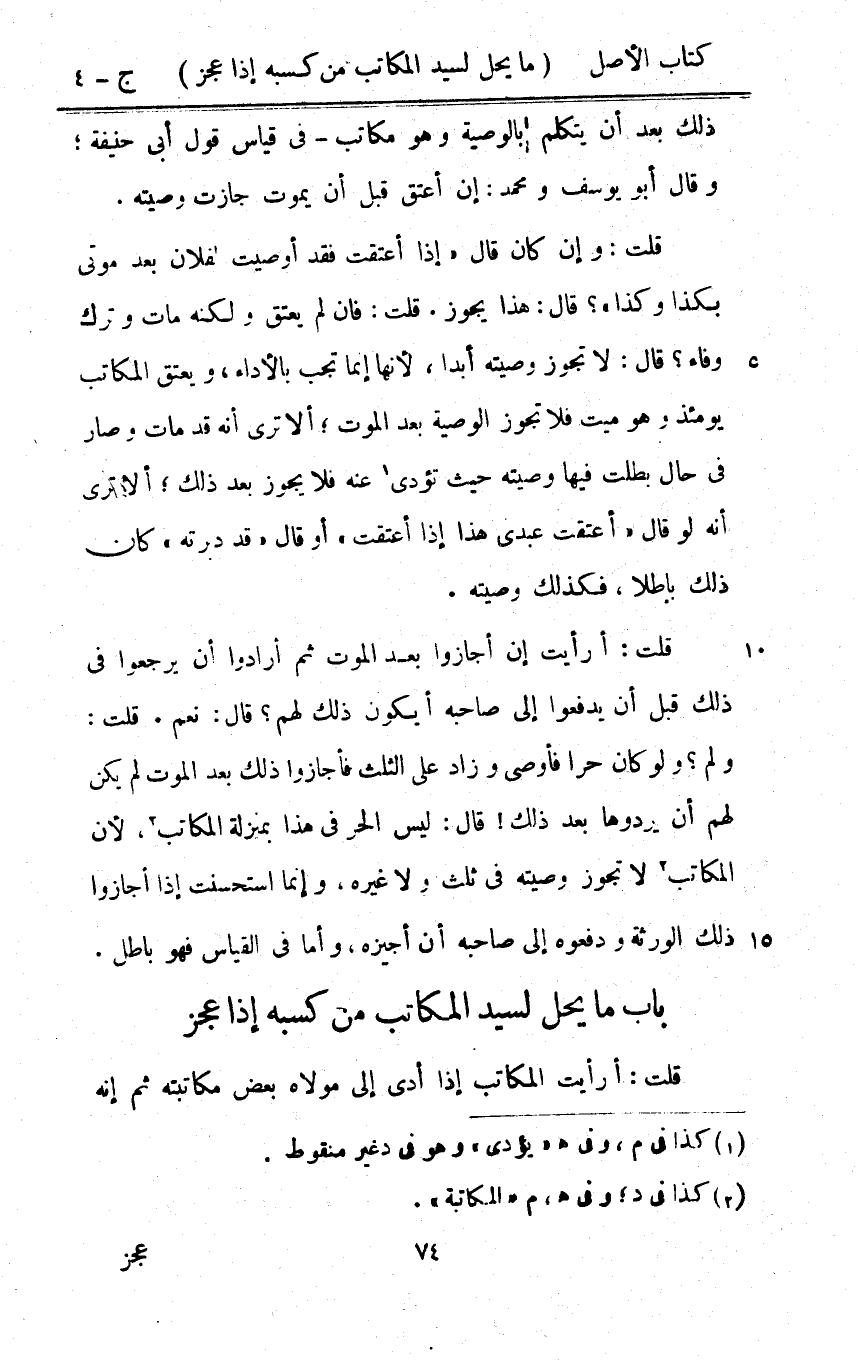 كتاب الأصل ( ما يحل لسيد المكاتب من كسبه إذا عجز ) ج - ٤
ذلك بعد أن يتكلم بالوصية و هو مكاتب - فى قياس قول أبى حنيفة ؛
و قال أبو يوسف و محمد : إن أعتق قبل أن يموت جازت وصيته .
قلت : و إن كان قال « إذا أعتقت فقد أوصيت لفلان بعد موتى
بكذا و كذا » ؟ قال : هذا يجوز . قلت : فان لم يعتق و لكنه مات و ترك
٥ وفاء ؟ قال : لا تجوز وصيته أبدا ، لأنها إنما تجب بالأداء ، و يعتق المكاتب
يومئذ و هو ميت فلا تجوز الوصية بعد الموت ؛ ألا ترى أنه قد مات و صار
فى حال بطلت فيها وصيته حيث تؤدى ١ عنه فلا يجوز بعد ذلك ؛ ألا ترى
أنه لو قال « أعتقت عبدى هذا إذا أعتقت » أو قال « قد دبرته » كان
ذلك باطلا ، فكذلك وصيته .
١٠ قلت : أ رأيت إن أجازوا بعد الموت ثم أرادوا أن يرجعوا فى
ذلك قبل أن يدفعوا إلى صاحبه أ يكون ذلك لهم ؟ قال : نعم . قلت :
و لم ؟ و لو كان حرا فأوصى و زاد على الثلث فأجازوا ذلك بعد الموت لم يكن
لهم أن يردوها بعد ذلك ! قال : ليس الحر فى هذا بمنزلة المكاتب ٢ ، لأن
المكاتب ٢ لا تجوز وصيته فى ثلث و لا غيره ، و إنما استحسنت إذا أجازوا
١٥ ذلك الورثة و دفعوه إلى صاحبه أن أجيزه ، و أما فى القياس فهو باطل .
باب ما يحل لسيد المكاتب من كسبه إذا عجز
قلت : أ رأيت المكاتب إذا أدى إلى مولاه بعض مكاتبته ثم إنه
(١) كذا فى م ، و فى ه « يؤدى » و هو فى د غير منقوط .
(٢) كذا فى د ؛ و فى ه ، م « المكاتبة » .
٧٤ عجز